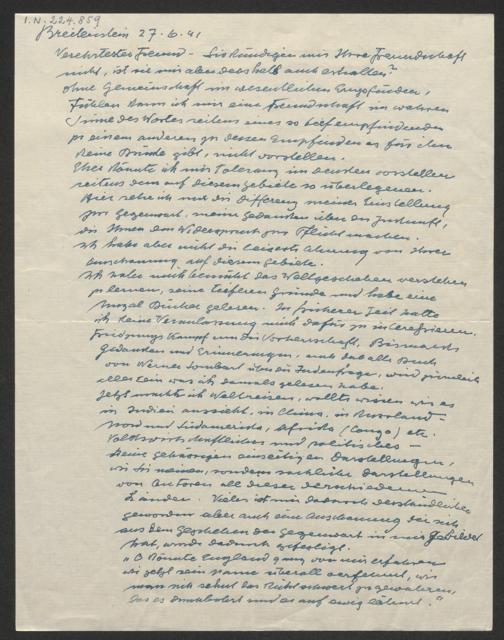 I.N. 224.859
Breitenstein 27.6.41
Verehrtester Freund – Sie kündigen mir Ihre Freundschaft
nicht, ist sie mir aber deshalb auch erhalten?
Ohne Gemeinschaft im wesentlichen Empfinden,
Fühlen kann ich mir eine Freundschaft im wahren
Sinne des Wortes seitens eines so tief empfindenden
zu einem anderen zu dessen Empfinden es für ihn
keine Brücke gibt, nicht vorstellen.
Eher könnte ich mir Toleranz im denken vorstellen
seitens dem auf diesem Gebiete so überlegenen.
Hier sehe ich nur die Differenz meiner Einstellung
zur Gegenwart, meine Gedanken über die Zukunft,
die Ihnen den Widerspruch zur Pflicht machen.
Ich habe aber nicht die leiseste Ahnung von Ihrer
Anschauung auf diesem Gebiete.
Ich habe mich bemüht das Weltgeschehen verstehen
zu lernen, seine tieferen Gründe und habe eine
Bücher gelesen. In früherer Zeit hatte
ich keine Veranlassung mich dafür zu interessieren.
Kampf um die Vorherrschaft, Bismarcks
Gedanken und Erinnerungen, auch das alte Buch
von Werner Sombart über die Judenfrage, wird ziemlich
alles sein was ich damals gelesen habe.
Jetzt machte ich Weltreisen, wollte wissen wie es
in Indien aussieht, in China, in Russland –
Nord und Südamerika, Afrika (Congo) etc.
Volkswirtschaftliches und politisches –
Keine gehässigen einseitigen Darstellungen,
wie Sie meinen, sondern sachliche Darstellungen
von Autoren all dieser verschiedenen
Länder. Vieles ist mir dadurch verständlicher
geworden aber auch eine Anschauung die sich
aus dem Geschehen der Gegenwart in mir gebildet
hat, wurde dadurch gefestigt.
"O könnte England ganz von mir erfahren
wie jetzt sein Name überall verfehmt, wie
man sich sehnt das Richtschwert zu gewahren,
das es ohnmächtig und es auf ewig lähmt."